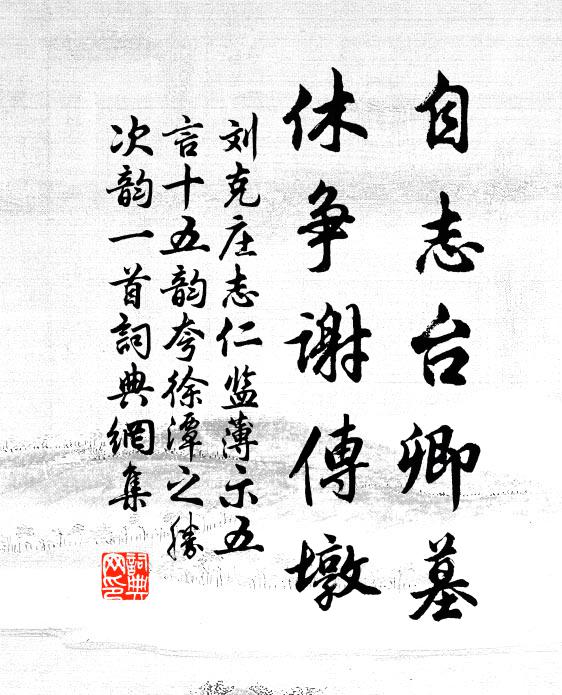 自志台卿墓
休争谢傳墩
刘克庄志仁监薄示五
言十五韵夸徐潭之胜
次韵一首詞典網集
詞典网印